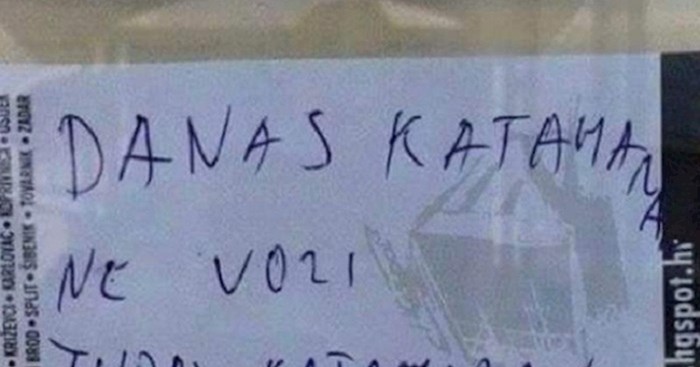 KRIŽEVCI • KARLOVAC • KOPRIVNICA • OSIJEK
BROD • SPLIT • ŠIBENIK • TOVARNIK • ZADAR
DANAS KATAMANA
NE VOZI
hgspot.hr